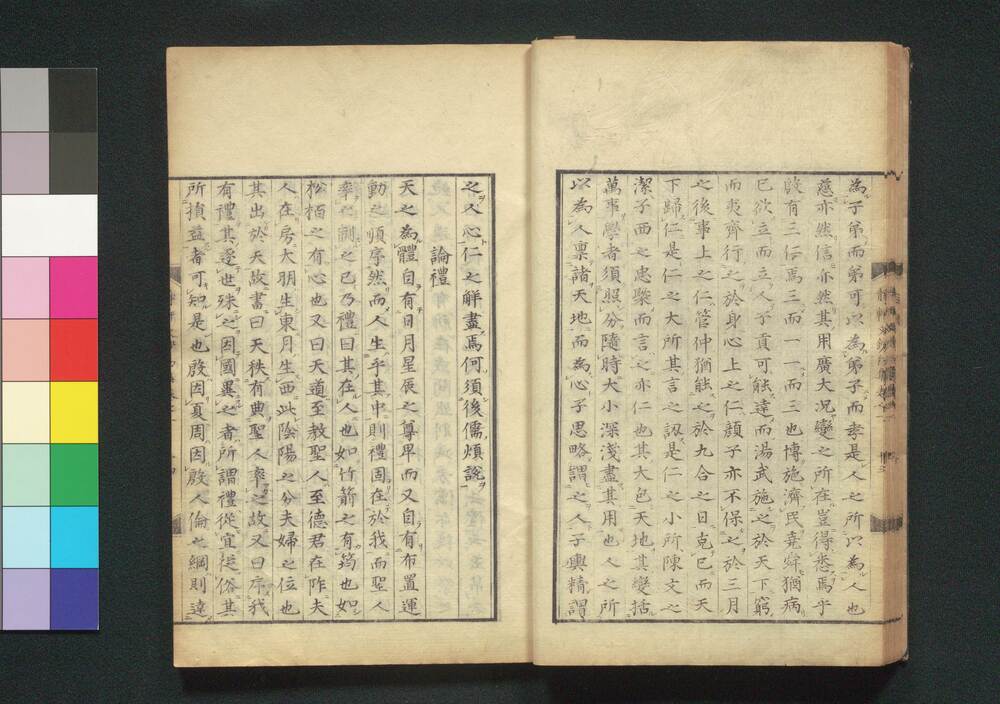 為子弟而第可以為弟子而孝是人之所以為人也
慈亦然信亦然其用廣大况變之所在豈得悉焉乎
殷有三仁焉三而一一而三也博施濟民堯舜猶病
已欲立而立人子貢可能達而湯武施之於天下窮
而夷齊行之於身心上之仁顏子亦不保之於三月
之後事上之仁管仲猶能之於九合之日克己而天
下歸仁是仁之大所其言之訒是仁之小所陳文之
潔子西之忠槩而言之亦仁也其大包天地其變括
萬事學者須照分隨時大小深淺盡其用也人之所
以為人稟諸天地而為心子思略謂之人子輿精謂
之人心仁之解盡焉何須後儒煩說
論禮
天之為體自有日月星辰之尊卑而又自有布置運
動之順序然而人生乎其中則禮固在於我而聖人
率訓之已乃禮曰其在人也如竹箭之有筠也如
松栢之有心也又曰天道至教聖人至德君在阼夫
人在房大明生東月生西此陰陽之分夫婦之位也
其出於天故書曰天秩有典聖人率之故又曰序我
有禮其逐世殊之因國異之者所謂禮從宜從俗其
所損益者可知是也殷因夏周因殷人倫之綱則達